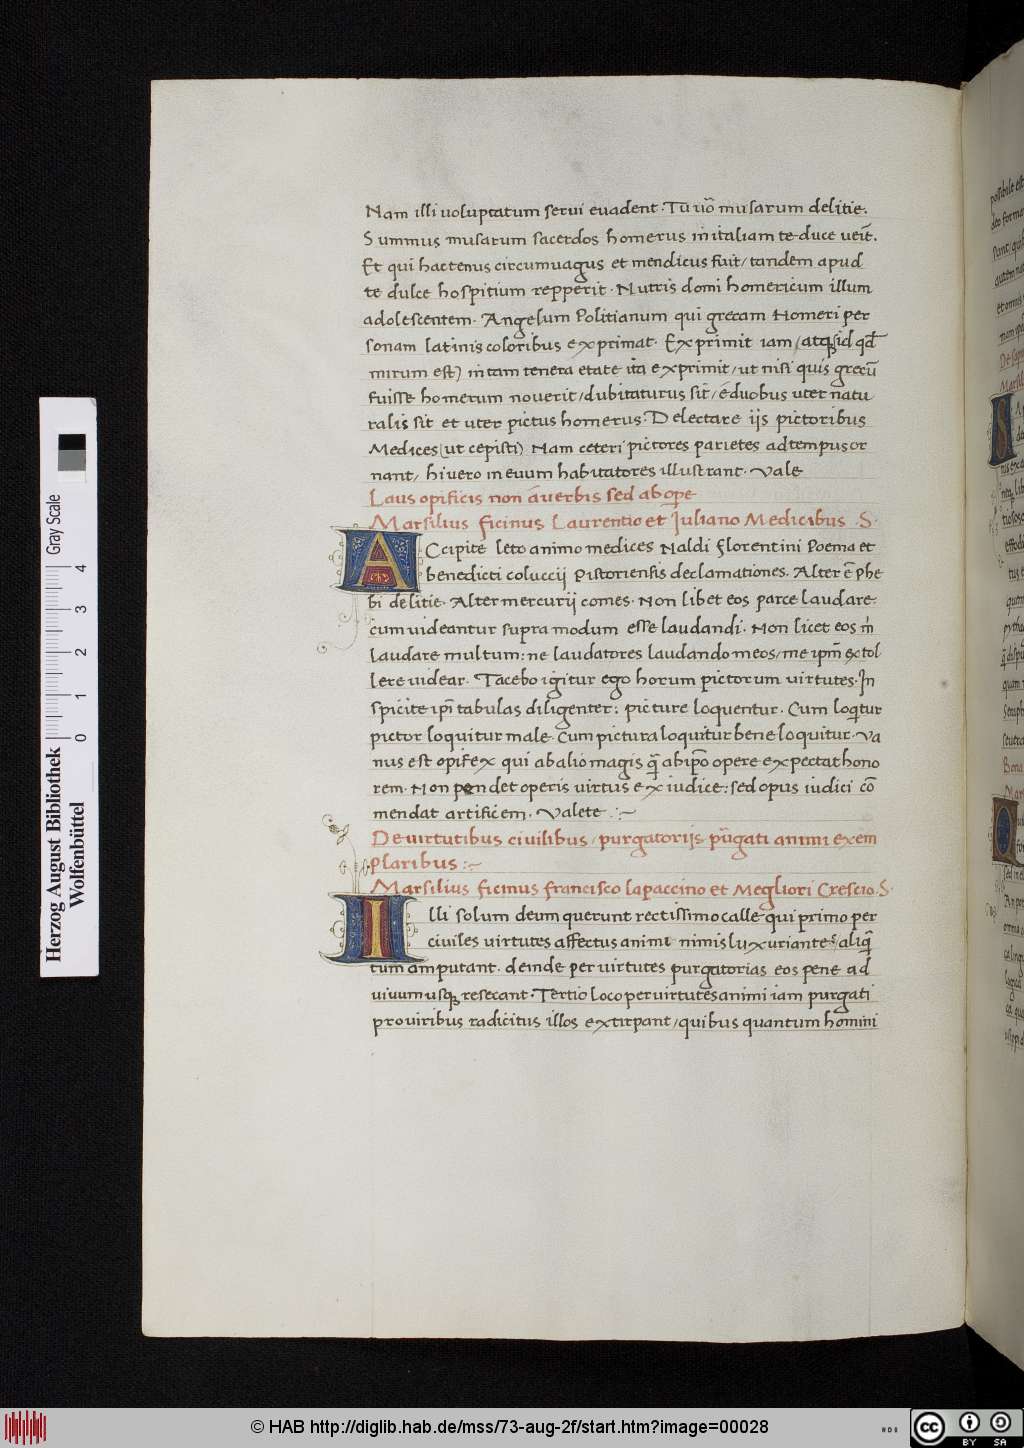 Nam illi uoluptatum serui euadent· Tu uo᷉ musarum delitie.
Summus musarum sacerdos homerus initaliam te duce ueīt.
Et qui hactenus circumuagus et mendicus fuit/ tandem apud
te dulce hospitium repperit· Nutris domi homericum illum
adolescentem· Angelum Politianum qui grecam Homeri per
sonam latinis coloribus exprimat· Exprimit iam (atqꝫ id qd̄
mirum est) intam tenera etate ita exprimit/ ut nisi quis grecū
fuisse homerum nouerit/ dubitaturus sit/ é duobus uter natu
ralis sit et uter pictus homerus· Delectare iis pictoribus
Medices (ut cepisti) Nam ceteri pictores parietes adtempus or
nant/ hi uero in euum habitatores illustrant· Vale
Laus opificis non á uerbis sed ab oꝑe
Marsilius ficinus Laurentio et Iuliano Medicibus ·S·
ACcipite leto animo medices Naldi florentini Poema et
benedicti coluccij Pistoriensis declamationes· Alter ē phe
bi delitie· Alter mercurij comes· Non libet eos parce laudare·
cum uideantur supra modum esse laudandi· Non licet eos m̄
laudare multum: ne laudatores laudando meos/ me ipm̄ extol
lere uidear· Tacebo igitur ego horum pictorum uirtutes· In
spicite ip̄i tabulas diligenter: picture loquentur· Cum loq̄tur
pictor loquitur male· Cum pictura loquitur bene loquitur· Va
nus est opifex qui ab alio magis q̄ ab ip̄o opere expectat hono
rem· Non pendet operis uirtus ex iudice: sed opus iudici cō
mendat artificem· Valete :~
De uirtutibus ciuilibus/ purgatorijs pūgati animi exem
plaribus :~
Marsilius ficinus francisco lapaccino et Megliori Crescio·S·
Illi solum deum querunt rectissimo calle qui primo per
ciuiles uirtutes affectus animi nimis luxuriantes aliq̄
tum amputant· deinde per uirtutes purgatorias eos pene ad
uiuum usqꝫ resecant· Tertio loco per uirtutes animi iam purgati
pro uiribus radicitus illos extirpant/ quibus quantum homini
Herzog August Bibliothek
Wolfenbüttel
Gray Scale
0 1 2 3 4
© HAB http://diglib.hab.de/mss/73-aug-2f/start.htm?image=00028
cc BY SA